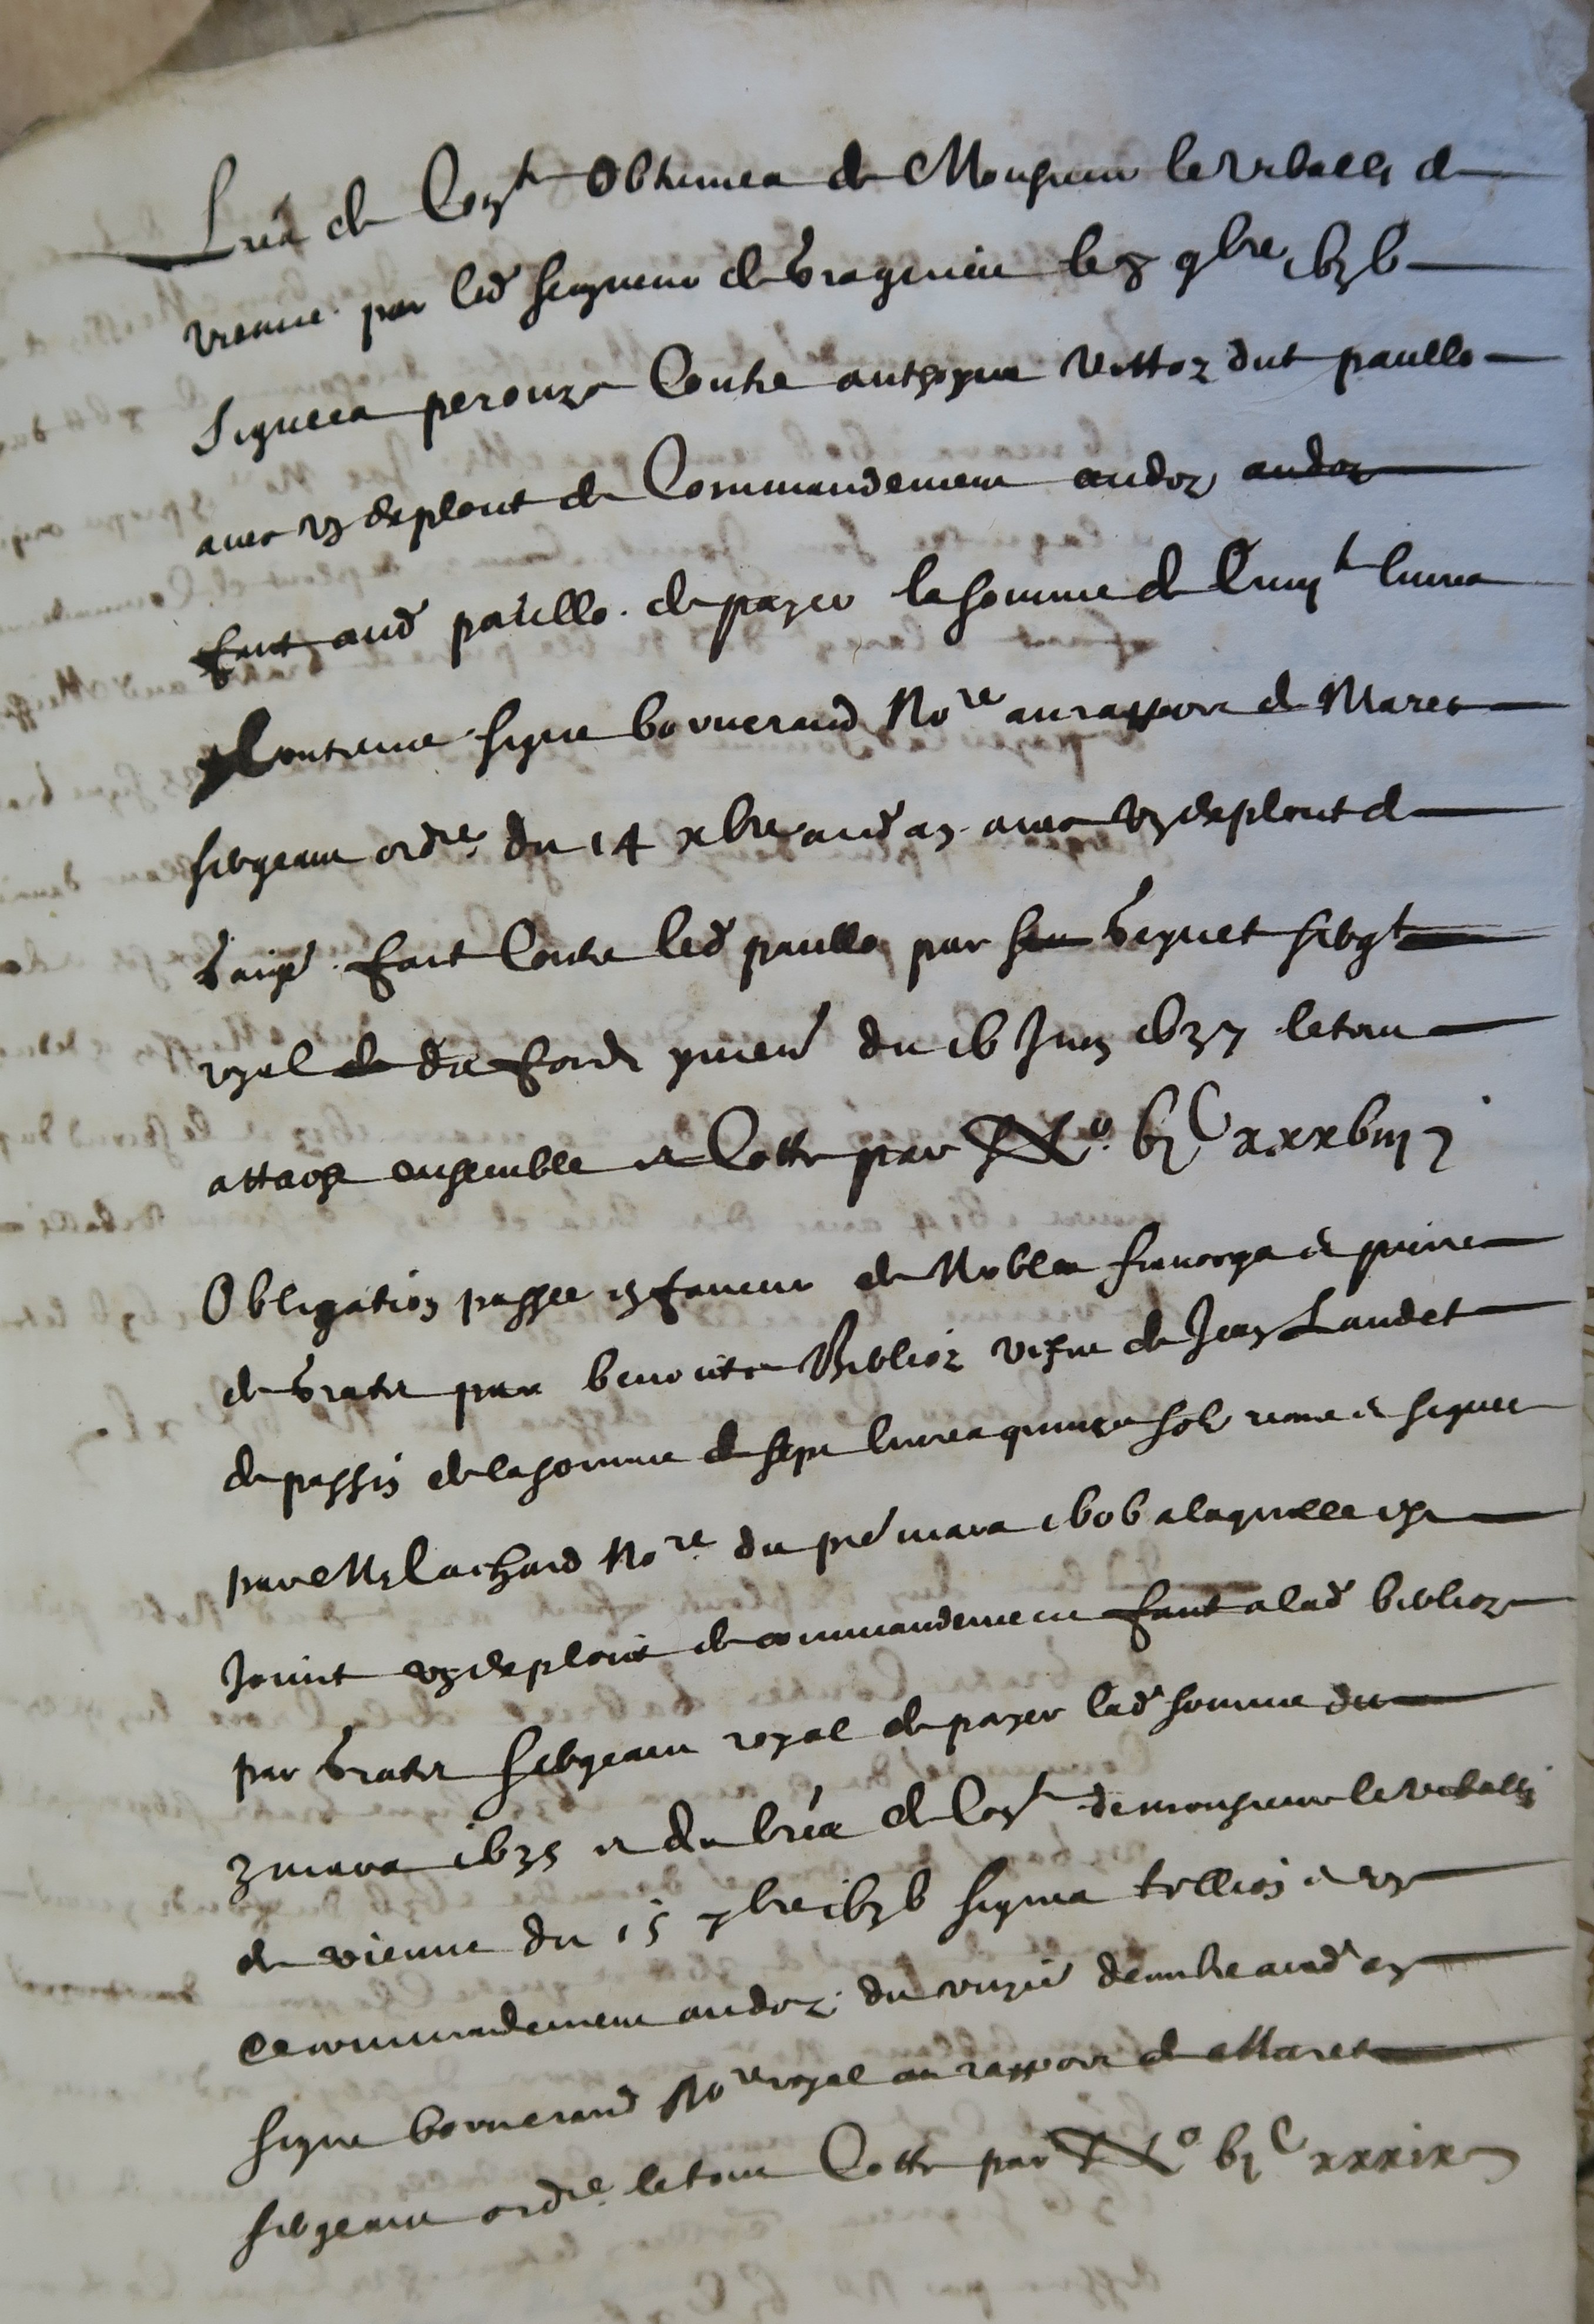 Lres de Const obtenues de Monsieur le vibally de
vienne par led seigneur de bragenieu le 8 9bre 1636
signees perouze Contre anthoyne Vettoz dict paullo
avec un exploict de Commandement audoz audoz
faict aud paullo de payer la somme de livres
y Contenue signe bovuerand Nore au rapport de Marec
sergeant ordre du 14 xbre aud an avec un exploict de
faict Contre led paullo par seguet sergt
royal du 16 Juin 1637 le tout
attaché ensemble et Cotte par No. vjC xxxviij
Obligation passee en faveur de Noble francoys et pierre
de brater par benoicte Biblioz vefue de Jean Laudet
de passin de la somme de sept livres quinze solz receue et signee
par Me lachard Nore du pre mars 1606 a laquelle est
Joinct un exploict de commandement faict a lad biblioz
par brater sergeant royal de payer lad somme du
3 mars 1635 et du lres de Const de monsieur le vibally
de vienne du 15 7bre 1636 signes trellion et un
Commandement audoz du dernbre aud an
signe bovuerand Nore royal au rapport de Marec
sergeant ordre le tout Cotte par No vjC xxxix